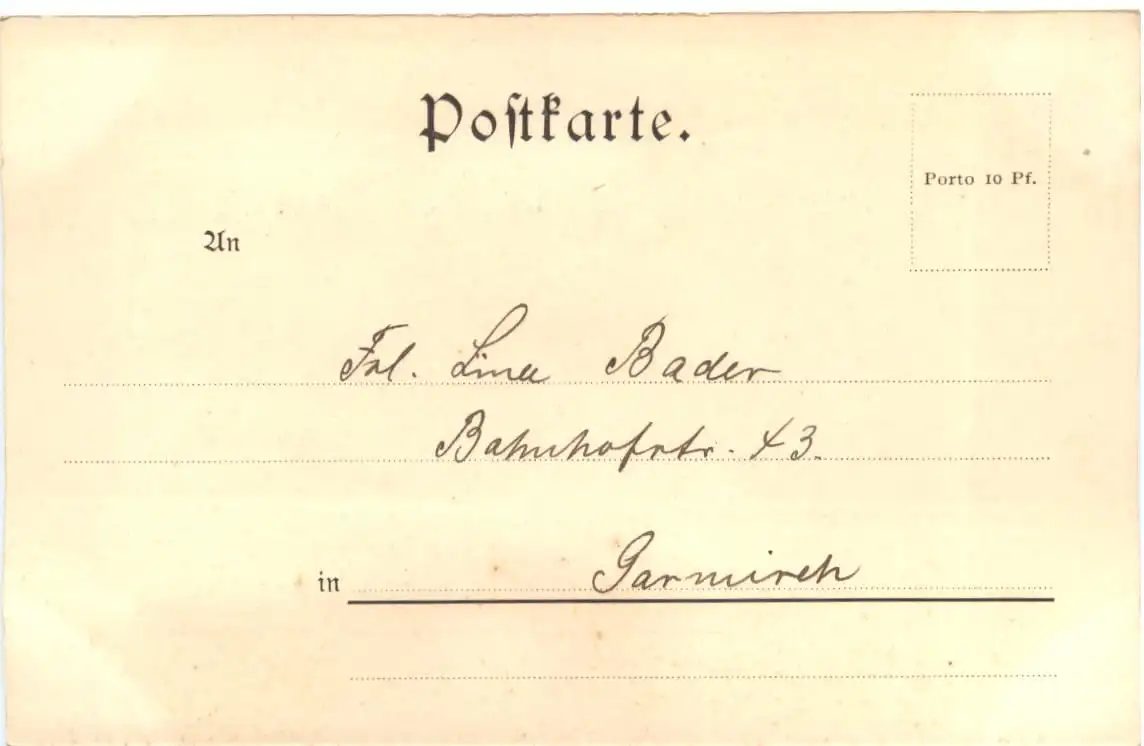 Postkarte.
Porto 10 Pf.
An
Frl. Lina Bader
Bahnhofstr. 43.
in Garmisch